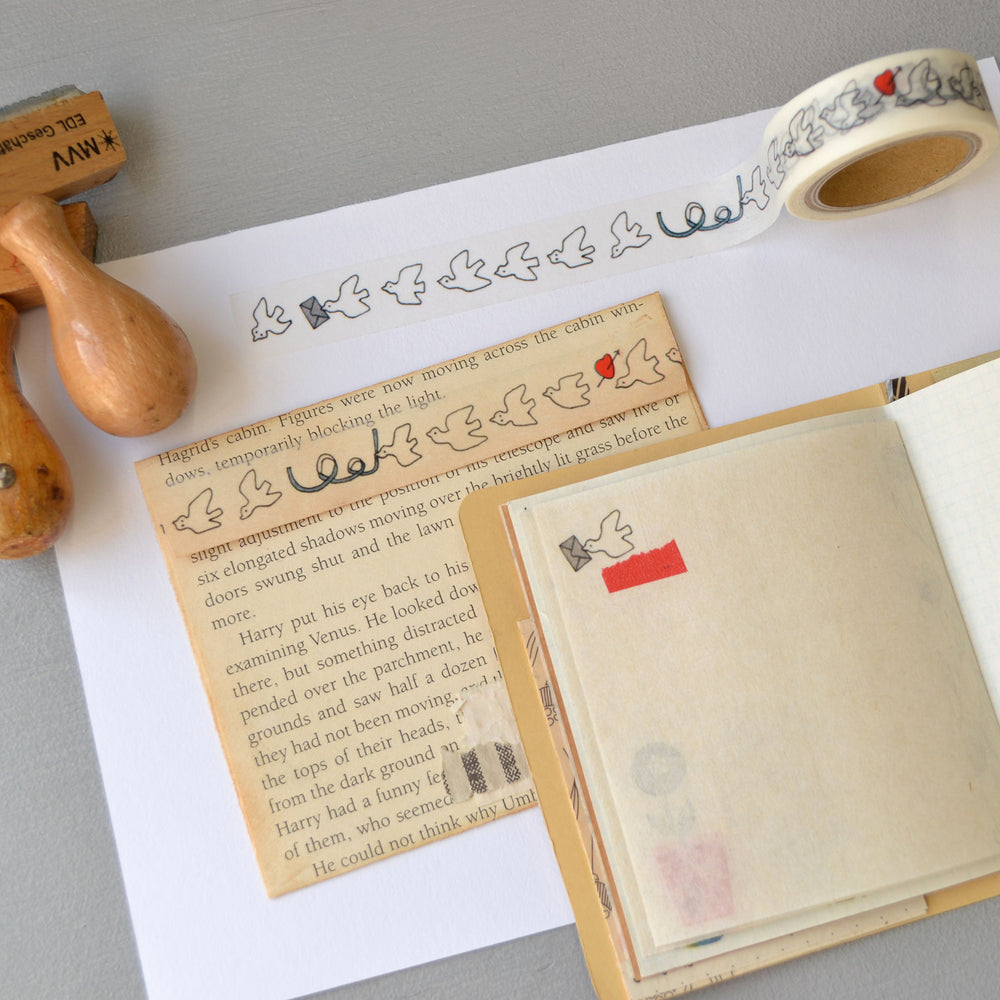 MVV
EDL Geschä
Hagrid's cabin. Figures were now moving across the cabin win-
dows, temporarily blocking the light.
adjustment to the position of his telescope and saw five or
six elongated shadows moving over the brightly lit grass before the
doors swung shut and the lawn
more.
Harry put his eye back to his
examining Venus. He looked dow
there, but something distracted
pended over the parchment, he
grounds and saw half a dozen
they had not been moving, and th
the tops of their heads,
from the dark ground on
Harry had a funny fe
of them, who seemed
He could not think why Umb